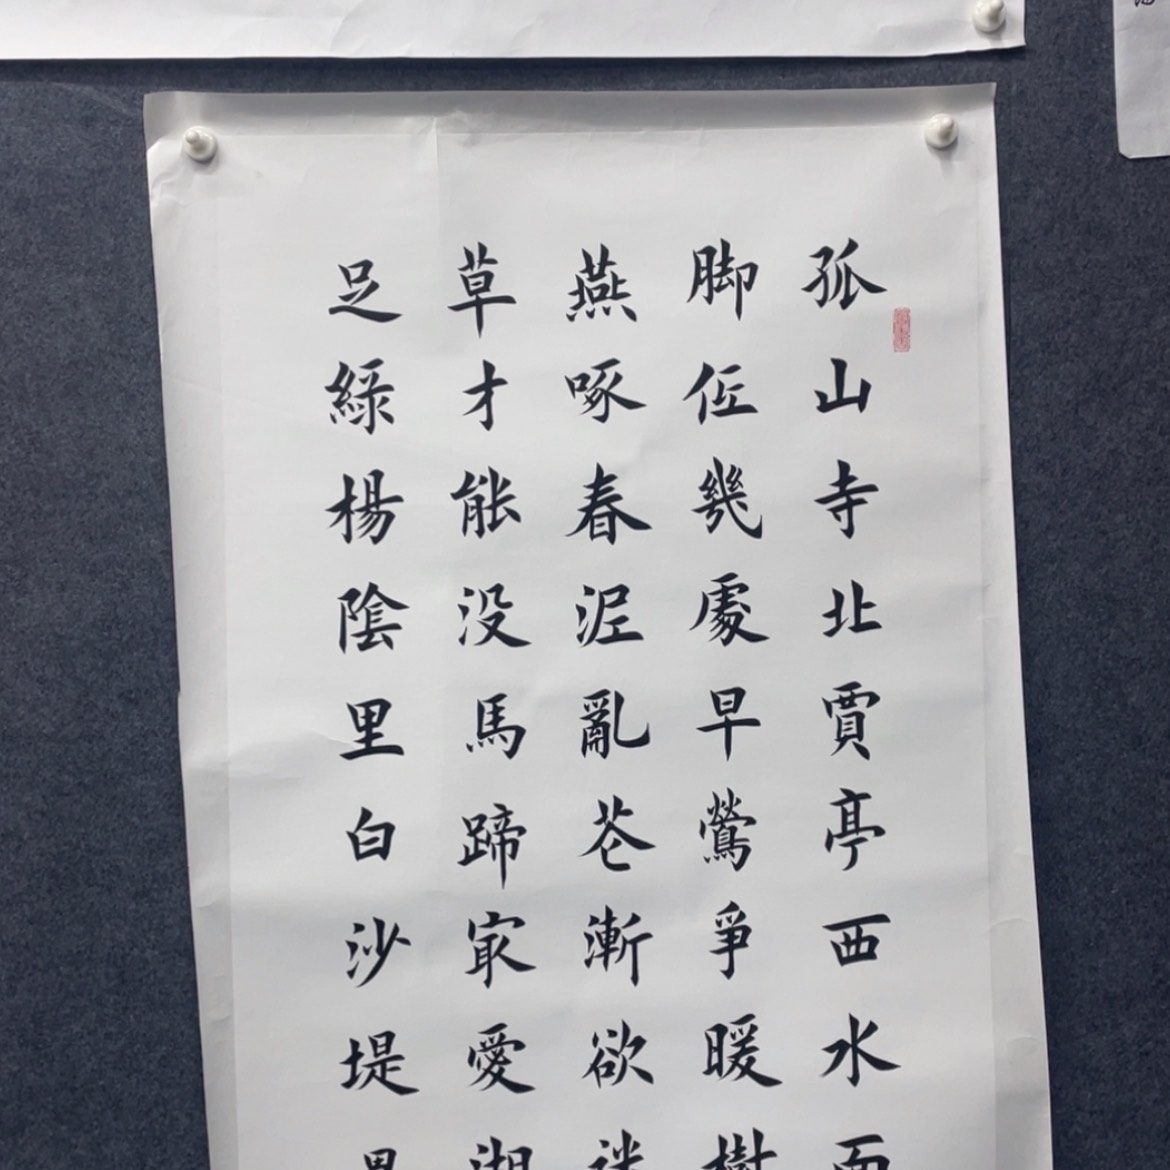 孤山寺北賈亭西水面
脚低幾處早鶯爭暖樹
燕啄春泥亂花漸欲迷
草才能没馬蹄冣愛湖
足綠楊陰里白沙堤